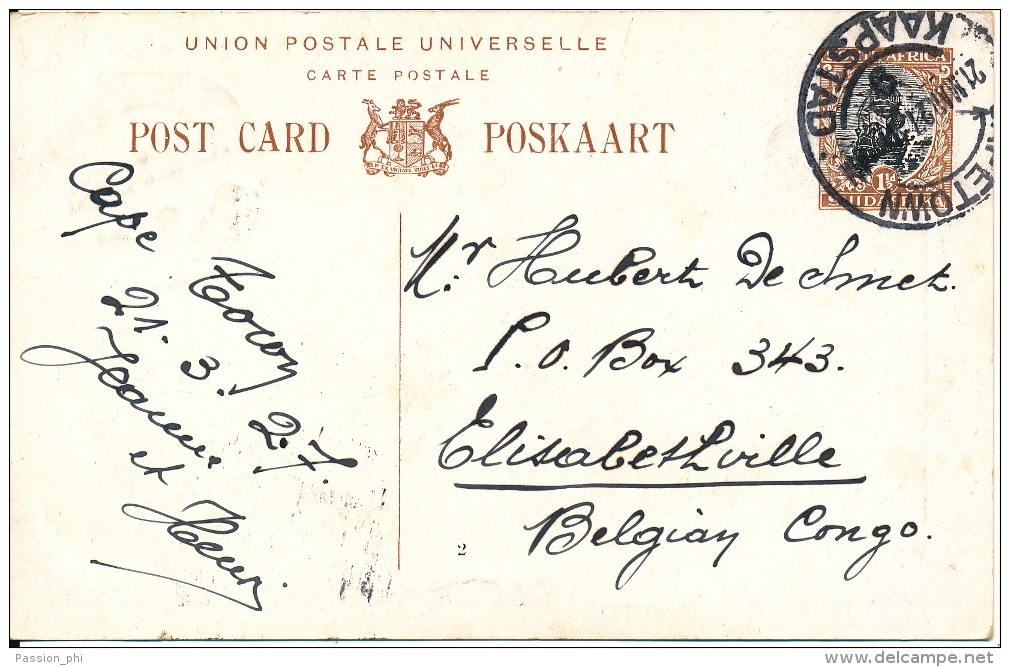 UNION POSTALE UNIVERSELLE
CARTE POSTALE
POST CARD POSKAART
SUIDAFRIKA
1½d
KAAPSTAD
CAPETOWN
Cape Town
21. 3. 27.
Jeanne
et Henri
Mr. Hubert De Smet.
P.O. Box 343.
Elisabethville
Belgian Congo.
2
Passion_phi
delcampe.net